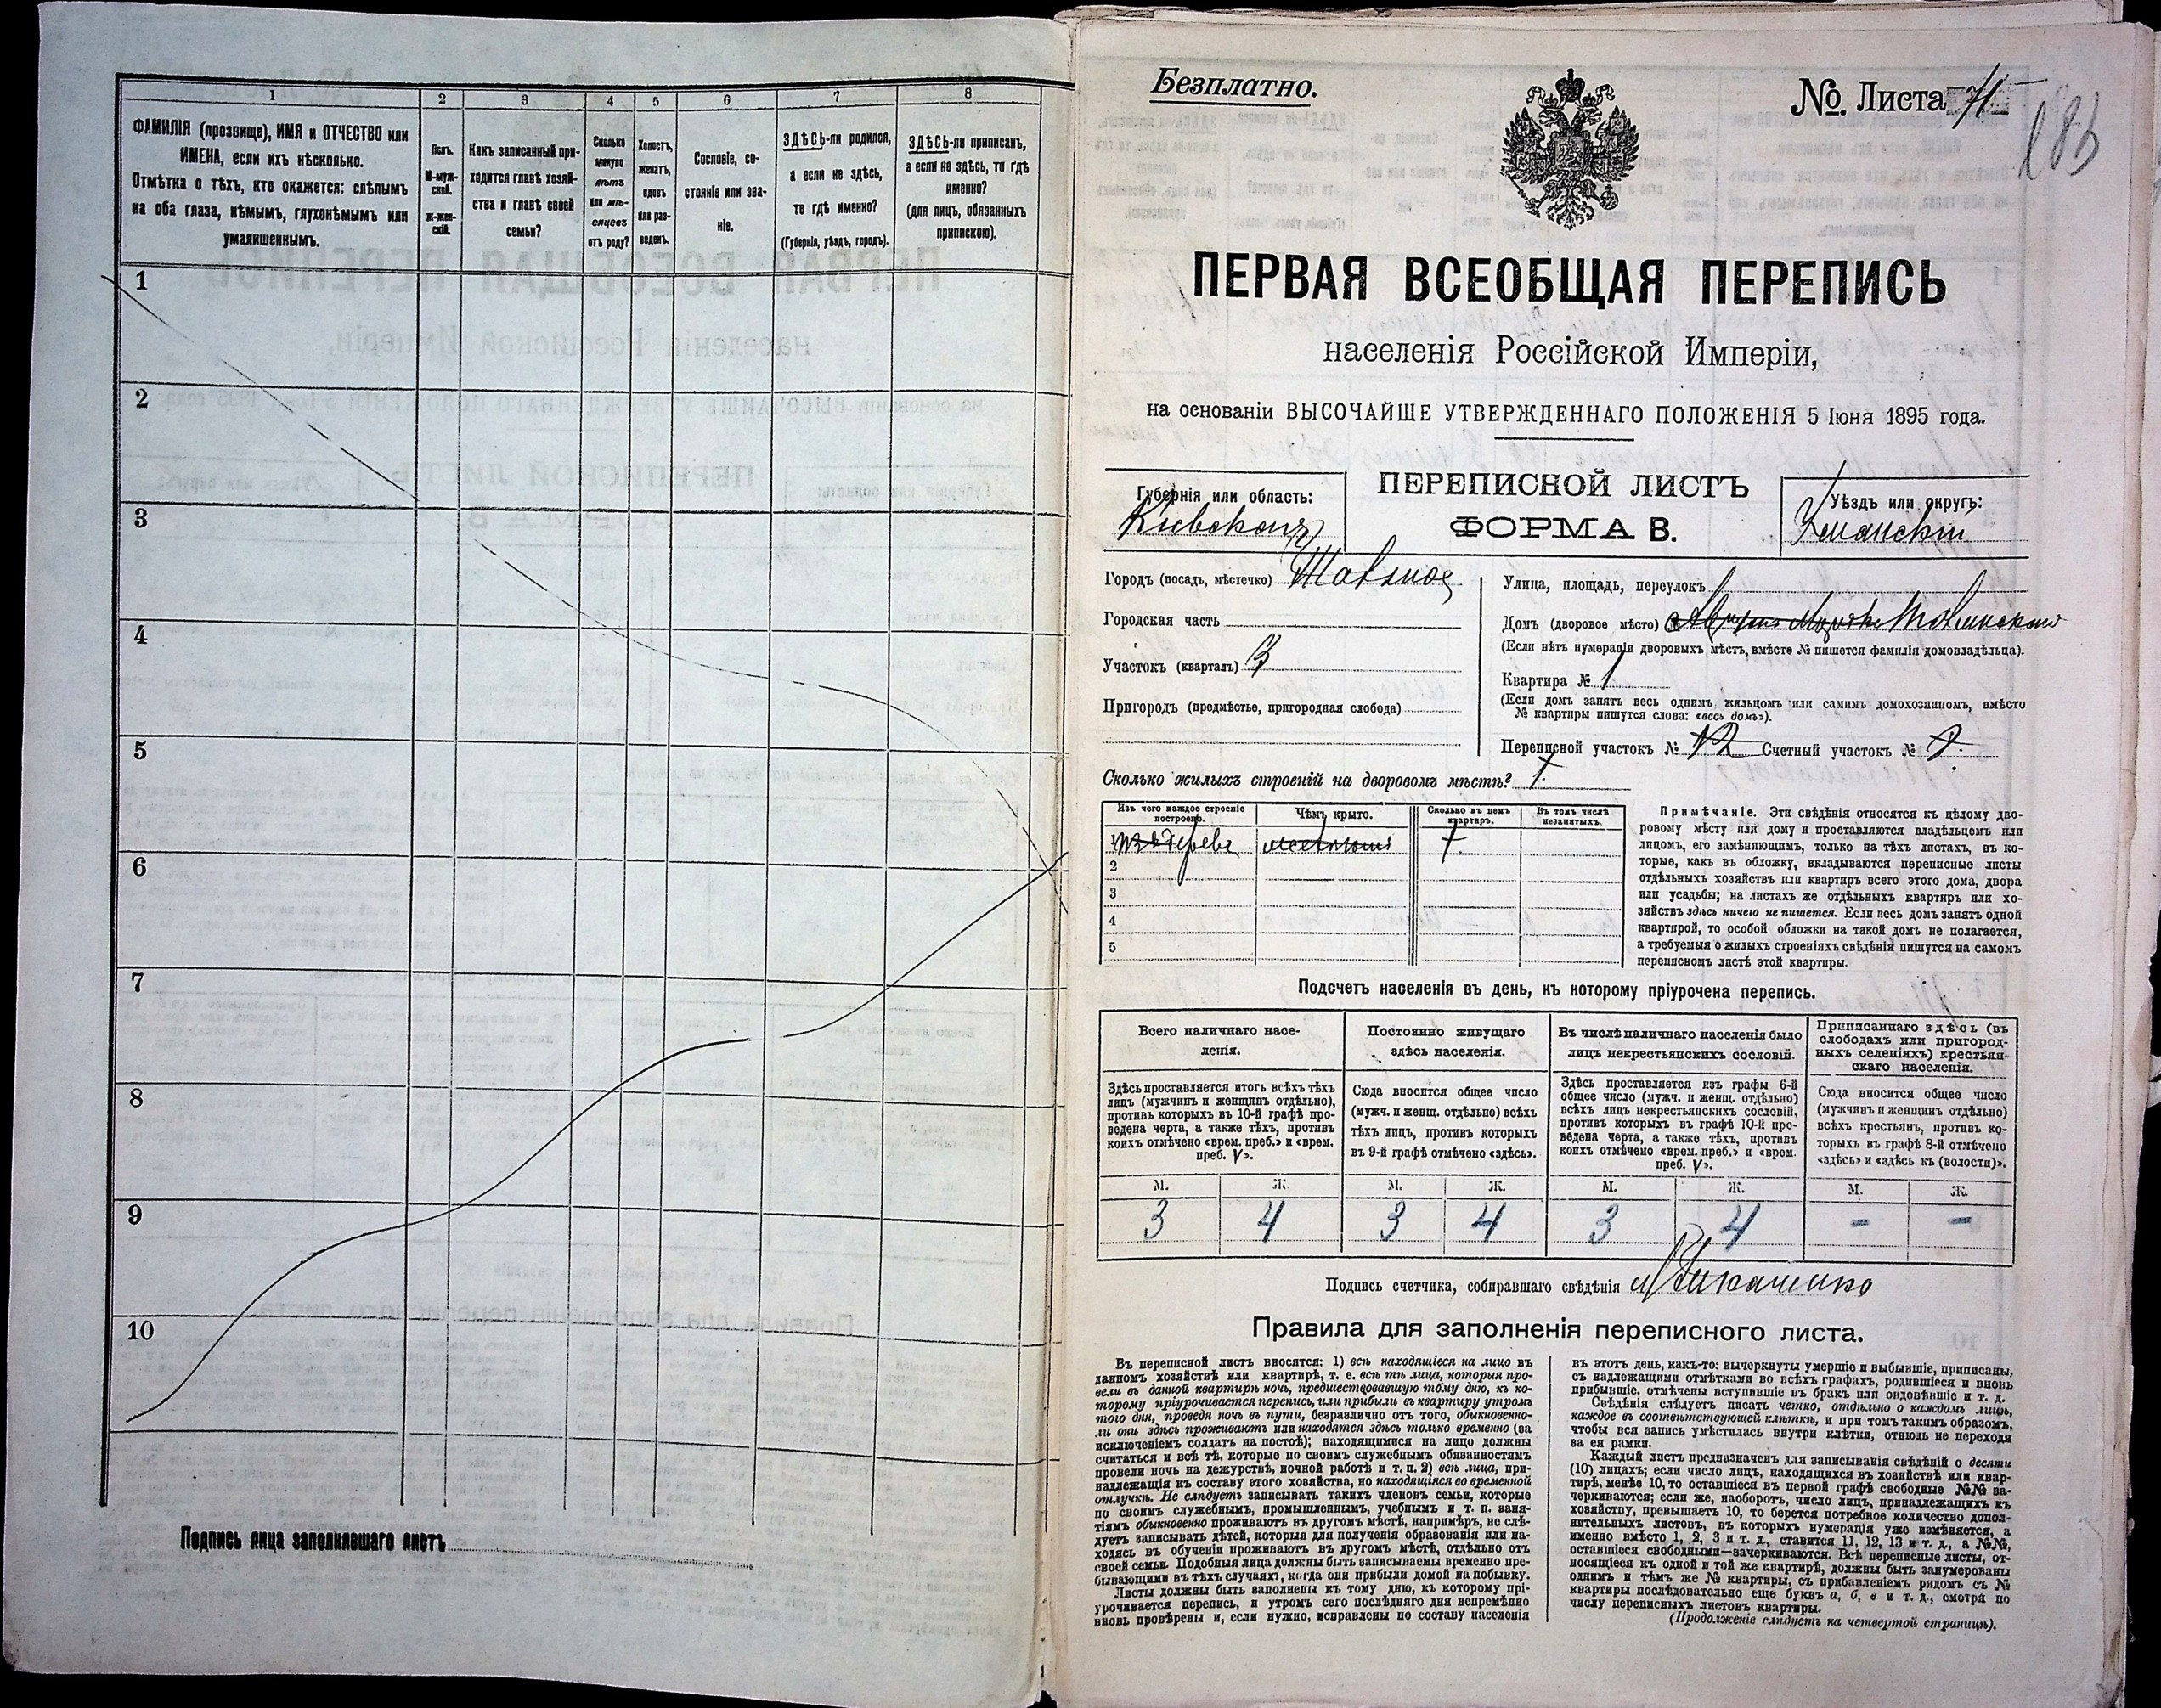 1 2 3 4 5 6 7 8
ФАМИЛІЯ (прозвище), ИМЯ и ОТЧЕСТВО или
ИМЕНА, если ихъ нѣсколько.
Отмѣтка о тѣхъ, кто окажется: слѣпымъ
на оба глаза, нѣмымъ, глухонѣмымъ или
умалишеннымъ.
Полъ.
М-муж-
ской.
ж-жен-
скій.
Какъ записанный при-
ходится главѣ хозяй-
ства и главѣ своей
семьи?
Сколько
минуло
лѣтъ
или мѣ-
сяцевъ
отъ роду?
Холостъ,
женатъ,
вдовъ
или раз-
веденъ.
Сословіе, со-
стояніе или зва-
ніе.
ЗДѢСЬ-ли родился,
а если не здѣсь,
то гдѣ именно?
(Губернія, уѣздъ, городъ).
ЗДѢСЬ-ли приписанъ,
а если не здѣсь, то гдѣ
именно?
(для лицъ, обязанныхъ
припискою).
1
2
3
4
5
6
7
8
9
10
Подпись лица заполнившаго листъ
Безплатно.
№ Листа 71
ПЕРВАЯ ВСЕОБЩАЯ ПЕРЕПИСЬ
населенія Россійской Имперіи,
на основаніи ВЫСОЧАЙШЕ УТВЕРЖДЕННАГО ПОЛОЖЕНІЯ 5 Іюня 1895 года.
Губернія или область:
Кіевская
ПЕРЕПИСНОЙ ЛИСТЪ
ФОРМА В.
Уѣздъ или округъ:
Уманскій
Городъ (посадъ, мѣстечко)
Городская часть
Участокъ (кварталъ) 3
Пригородъ (предмѣстье, пригородная слобода)
Улица, площадь, переулокъ
Домъ (дворовое мѣсто) №
(Если нѣтъ нумераціи дворовыхъ мѣстъ, вмѣсто № пишется фамилія домовладѣльца).
Квартира № 1
(Если домъ занятъ весь однимъ жильцомъ или самимъ домохозяиномъ, вмѣсто
№ квартиры пишутся слова: «весь домъ»).
Переписной участокъ № 12 Счетный участокъ №
Сколько жилыхъ строеній на дворовомъ мѣстѣ? 1
Изъ чего каждое строеніе
построено.
Чѣмъ крыто.
Сколько въ немъ
квартиръ.
Въ томъ числѣ
незанятыхъ.
1
2
3
4
5
Примѣчаніе. Эти свѣдѣнія относятся къ цѣлому дво-
ровому мѣсту или дому и проставляются владѣльцемъ или
лицомъ, его замѣняющимъ, только на тѣхъ листахъ, въ ко-
торые, какъ въ обложку, вкладываются переписные листы
отдѣльныхъ хозяйствъ или квартиръ всего этого дома, двора
или усадьбы; на листахъ же отдѣльныхъ квартиръ или хо-
зяйствъ здѣсь ничего не пишется. Если весь домъ занятъ одной
квартирой, то особой обложки на такой домъ не полагается,
а требуемыя о жилыхъ строеніяхъ свѣдѣнія пишутся на самомъ
переписномъ листѣ этой квартиры.
Подсчетъ населенія въ день, къ которому пріурочена перепись.
Всего наличнаго насе-
ленія.
Здѣсь проставляется итогъ всѣхъ тѣхъ
лицъ (мужчинъ и женщинъ отдѣльно),
противъ которыхъ въ 10-й графѣ про-
ведена черта, а также тѣхъ, противъ
коихъ отмѣчено «врем. преб.» и «врем.
преб. V».
Постоянно живущаго
здѣсь населенія.
Сюда вносится общее число
(мужч. и женщ. отдѣльно) всѣхъ
тѣхъ лицъ, противъ которыхъ
въ 9-й графѣ отмѣчено «здѣсь».
Въ числѣ наличнаго населенія было
лицъ некрестьянскихъ сословій.
Здѣсь проставляется изъ графы 6-й
общее число (мужч. и женщ. отдѣльно)
всѣхъ лицъ некрестьянскихъ сословій,
противъ которыхъ въ графѣ 10-й про-
ведена черта, а также тѣхъ, противъ
коихъ отмѣчено «врем. преб.» и «врем.
преб. V».
Приписаннаго здѣсь (въ
слободахъ или пригород-
ныхъ селеніяхъ) крестьян-
скаго населенія.
Сюда вносится общее число
(мужчинъ и женщинъ отдѣльно)
всѣхъ крестьянъ, противъ ко-
торыхъ въ графѣ 8-й отмѣчено
«здѣсь» и «здѣсь къ (волости)».
М. Ж. М. Ж. М. Ж. М. Ж.
3 4 3 4 3 4 - -
Подпись счетчика, собиравшаго свѣдѣнія
Правила для заполненія переписного листа.
Въ переписной листъ вносятся: 1) всѣ находящіеся на лицо въ
данномъ хозяйствѣ или квартирѣ, т. е. всѣ тѣ лица, которыя про-
вели въ данной квартирѣ ночь, предшествовавшую тому дню, къ ко-
торому пріурочивается перепись, или прибыли въ квартиру утромъ
того дня, проведя ночь въ пути, безразлично отъ того, обыкновенно-
ли они здѣсь проживаютъ или находятся здѣсь только временно (за
исключеніемъ солдатъ на постоѣ); находящимися на лицо должны
считаться и всѣ тѣ, которые по своимъ служебнымъ обязанностямъ
провели ночь на дежурствѣ, ночной работѣ и т. п. 2) всѣ лица, при-
надлежащія къ составу этого хозяйства, но находящіяся во временной
отлучкѣ. Не слѣдуетъ записывать такихъ членовъ семьи, которые
по своимъ служебнымъ, промышленнымъ, учебнымъ и т. п. заня-
тіямъ обыкновенно проживаютъ въ другомъ мѣстѣ, напримѣръ, не слѣ-
дуетъ записывать дѣтей, которыя для полученія образованія или на-
ходясь въ обученіи проживаютъ въ другомъ мѣстѣ, отдѣльно отъ
своей семьи. Подобныя лица должны быть записываемы временно пре-
бывающими въ тѣхъ случаяхъ, когда они прибыли домой на побывку.
Листы должны быть заполнены къ тому дню, къ которому прі-
урочивается перепись, и утромъ сего послѣдняго дня непремѣнно
вновь провѣрены и, если нужно, исправлены по составу населенія
въ этотъ день, какъ-то: вычеркнуты умершіе и выбывшіе, приписаны,
съ надлежащими отмѣтками во всѣхъ графахъ, родившіеся и вновь
прибывшіе, отмѣчены вступившіе въ бракъ или овдовѣвшіе и т. д.
Свѣдѣнія слѣдуетъ писать четко, отдѣльно о каждомъ лицѣ,
каждое въ соотвѣтствующей клѣткѣ, и при томъ такимъ образомъ,
чтобы вся запись умѣстилась внутри клѣтки, отнюдь не переходя
за ея рамки.
Каждый листъ предназначенъ для записыванія свѣдѣній о десяти
(10) лицахъ; если число лицъ, находящихся въ хозяйствѣ или квар-
тирѣ, менѣе 10, то оставшіеся въ первой графѣ свободные №№ за-
черкиваются; если же, наоборотъ, число лицъ, принадлежащихъ къ
хозяйству, превышаетъ 10, то берется потребное количество допол-
нительныхъ листовъ, въ которыхъ нумерація уже измѣняется, а
именно вмѣсто 1, 2, 3 и т. д., ставится 11, 12, 13 и т. д., а №№,
оставшіеся свободными—зачеркиваются. Всѣ переписные листы, от-
носящіеся къ одной и той же квартирѣ, должны быть занумерованы
однимъ и тѣмъ же № квартиры, съ прибавленіемъ рядомъ съ №
квартиры послѣдовательно еще буквъ а, б, в и т. д., смотря по
числу переписныхъ листовъ квартиры.
(Продолженіе слѣдуетъ на четвертой страницѣ).